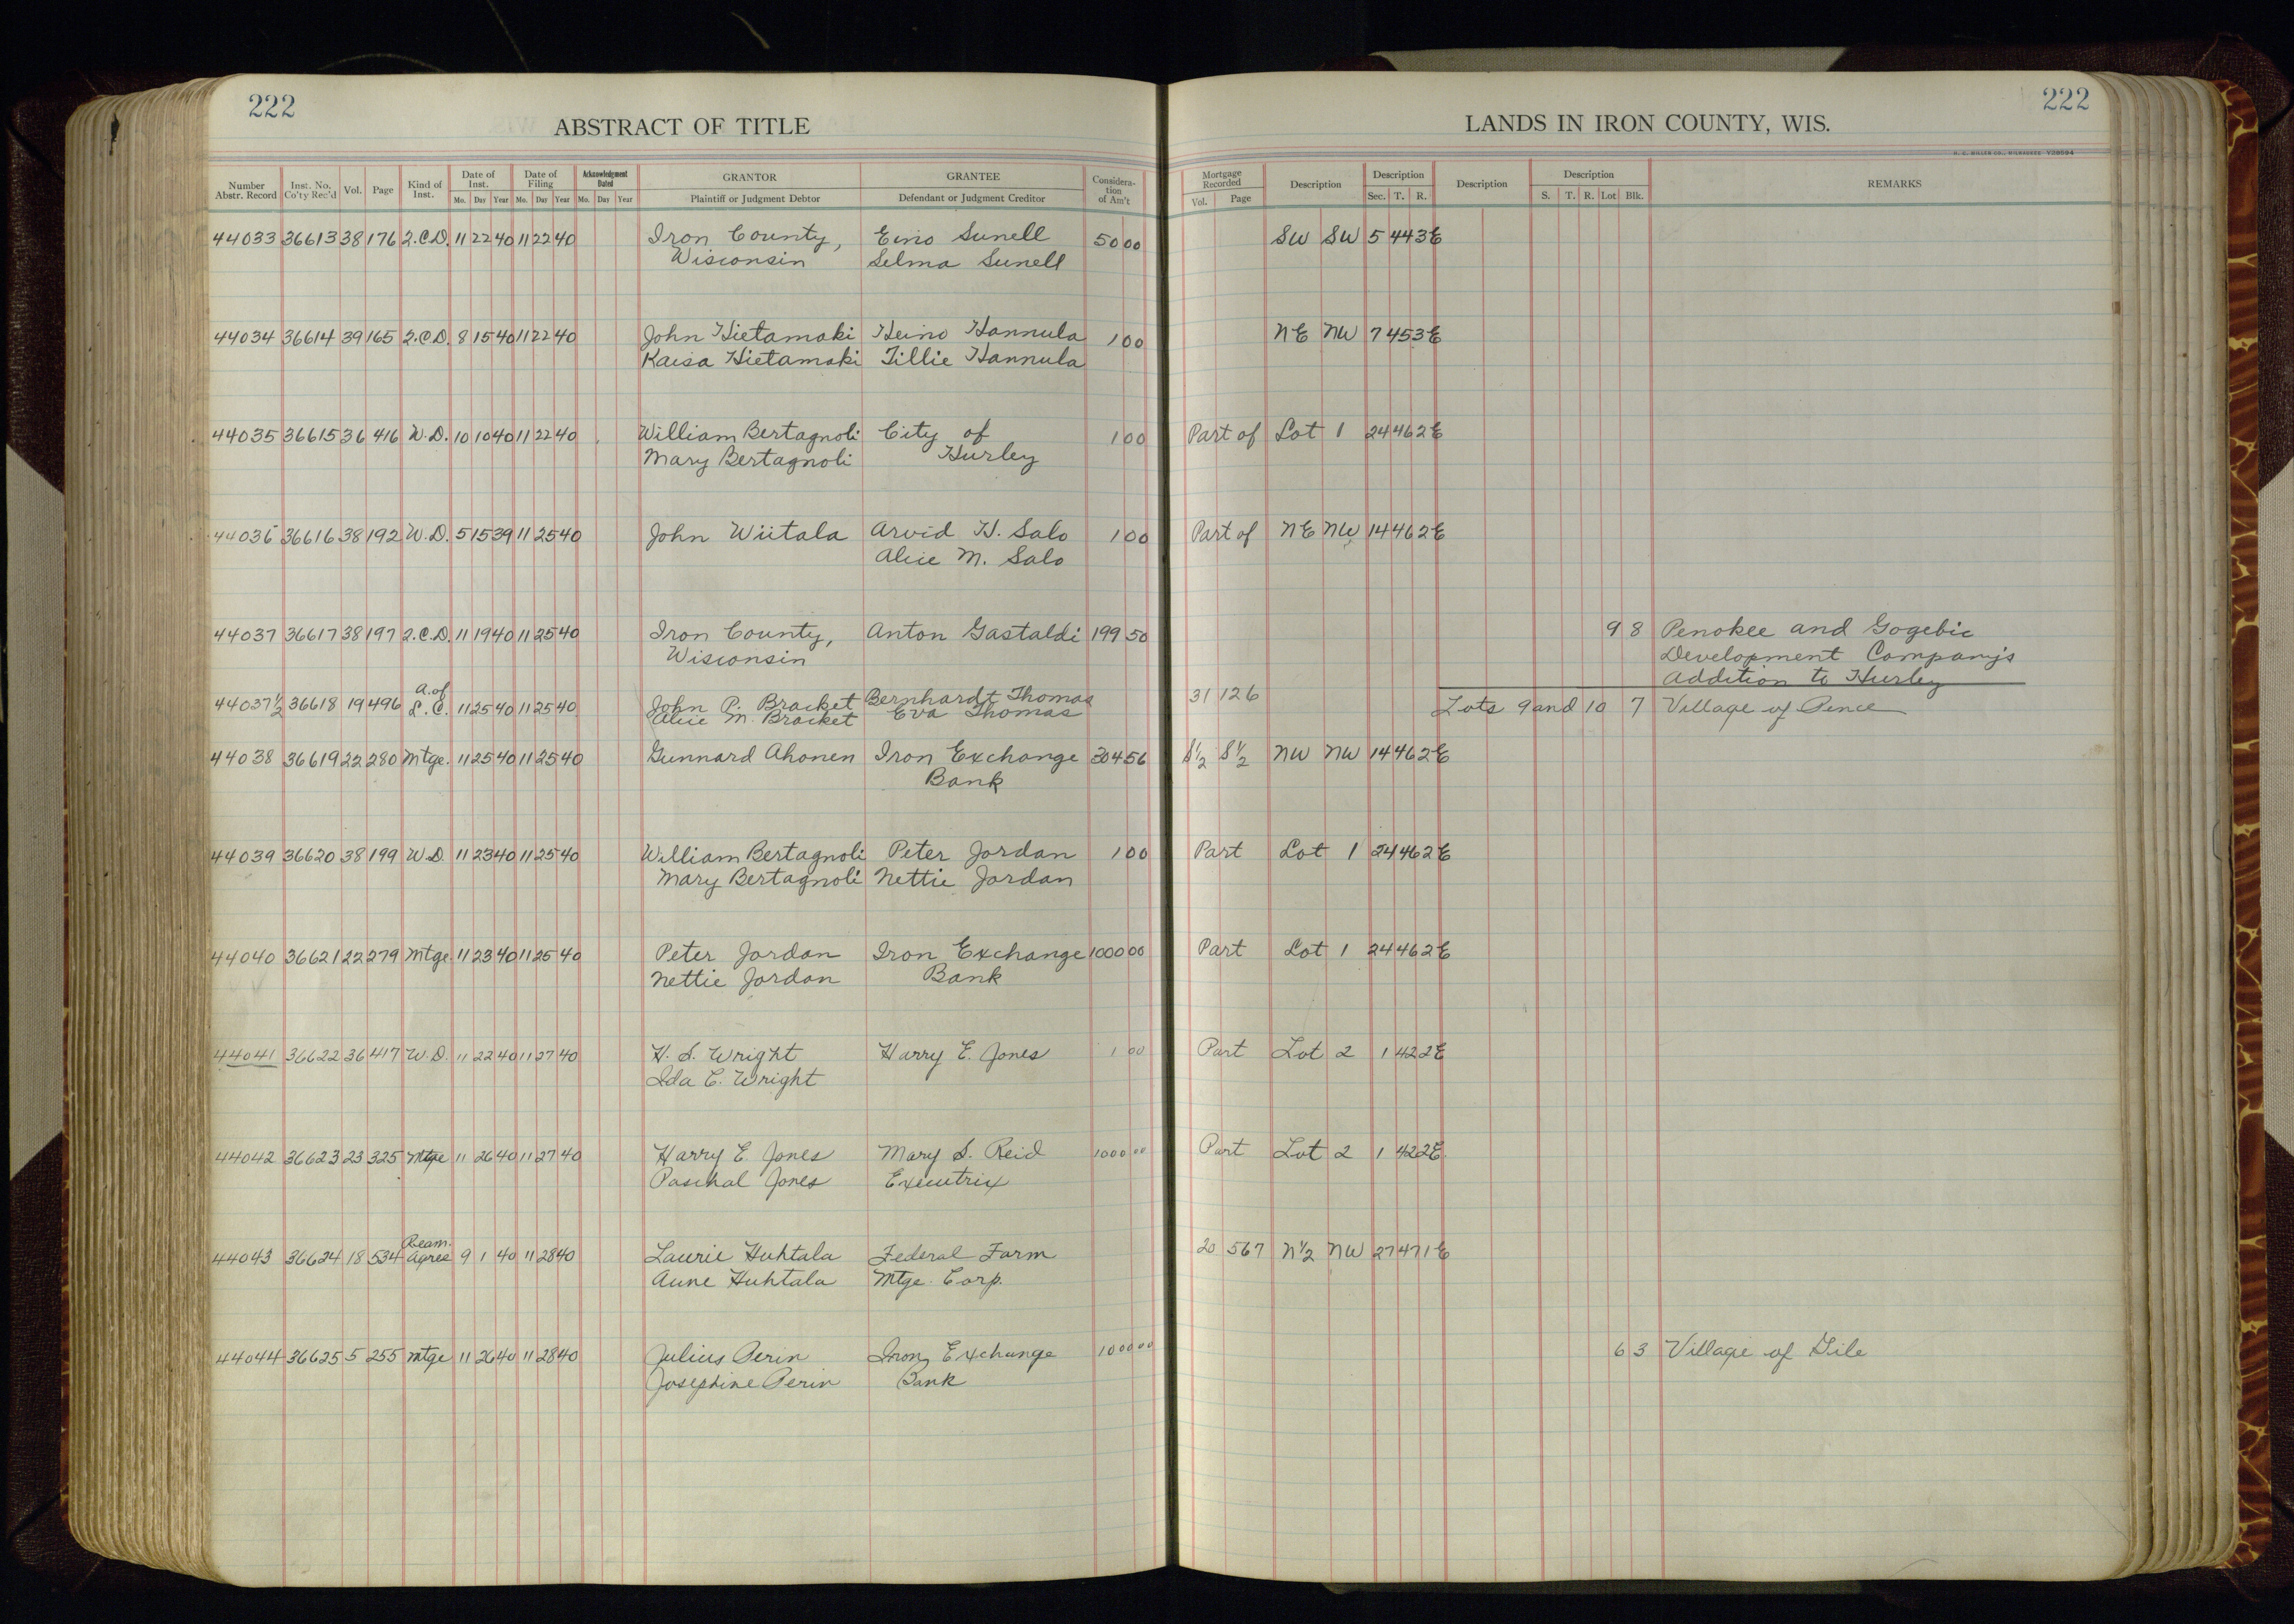 222
ABSTRACT OF TITLE
LANDS IN IRON COUNTY, WIS.
222
Number Abstr. Record | Inst. No. Co'ty Rec'd | Vol. | Page | Kind of Inst. | Date of Inst. Mo. Day Year | Date of Filing Mo. Day Year | Acknowledgment Dated Mo. Day Year | GRANTOR Plaintiff or Judgment Debtor | GRANTEE Defendant or Judgment Creditor | Consideration of Am't | Mortgage Recorded Vol. Page | Description | Description Sec. T. R. | Description | Description S. T. R. Lot Blk. | REMARKS
44033 36613 38 176 2.C.D. 11 22 40 11 22 40 Iron County, Eino Sunell 50 00 SW SW 5 44 3E
Wisconsin Selma Sunell
44034 36614 39 165 2.C.D. 8 15 40 11 22 40 John Hietamaki Heino Hannula 1 00 NE NW 7 45 3E
Kaisa Hietamaki Tillie Hannula
44035 36615 36 416 W.D. 10 10 40 11 22 40 William Bertagnoli City of 1 00 Part of Lot 1 24 46 2E
Mary Bertagnoli Hurley
44036 36616 38 192 W.D. 5 15 39 11 25 40 John Wiitala Arvid H. Salo 1 00 Part of NE NW 14 46 2E
Alice M. Salo
44037 36617 38 197 2.C.D. 11 19 40 11 25 40 Iron County, Anton Gastaldi 199 50 9 8 Penokee and Gogebic
Wisconsin Development Company's
Addition to Hurley
44037 1/2 36618 19 496 A. of L.C. 11 25 40 11 25 40 John P. Bracket Bernhardt Thomas 31 126 Lots 9 and 10 7 Village of Pence
Alice M. Bracket Eva Thomas
44038 36619 22 280 Mtge. 11 25 40 11 25 40 Gunnard Ahonen Iron Exchange 304 56 S½ S½ NW NW 14 46 2E
Bank
44039 36620 38 199 W.D. 11 23 40 11 25 40 William Bertagnoli Peter Jordan 1 00 Part Lot 1 24 46 2E
Mary Bertagnoli Nettie Jordan
44040 36621 22 279 Mtge. 11 23 40 11 25 40 Peter Jordan Iron Exchange 1000 00 Part Lot 1 24 46 2E
Nettie Jordan Bank
44041 36622 36 417 W.D. 11 22 40 11 27 40 H. S. Wright Harry E. Jones 1 00 Part Lot 2 1 42 2E
Ida C. Wright
44042 36623 23 325 Mtge 11 26 40 11 27 40 Harry E. Jones Mary S. Reid 1000 00 Part Lot 2 1 42 2E
Paschal Jones Executrix
44043 36624 18 534 Ream. Agree 9 1 40 11 28 40 Laurie Huhtala Federal Farm 20 567 N½ NW 27 47 1E
Aune Huhtala Mtge. Corp.
44044 36625 5 255 mtge 11 26 40 11 28 40 Julius Perin Iron Exchange 1000 00 6 3 Village of Gile
Josephine Perin Bank